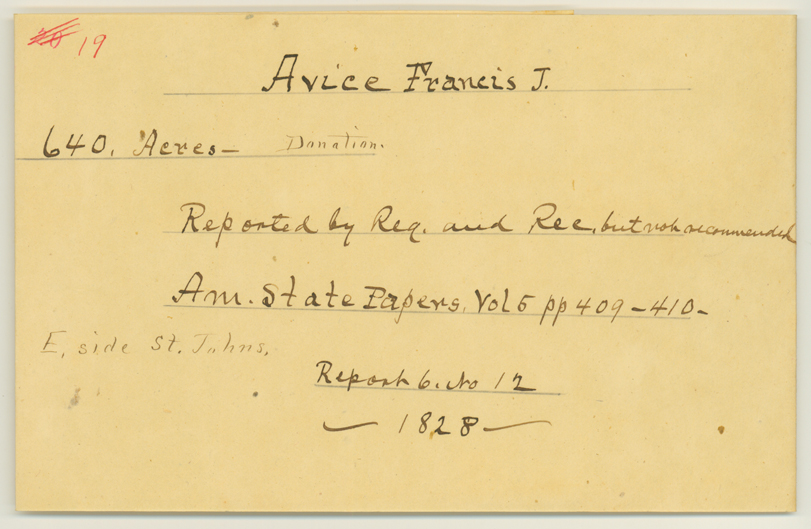 19
Avice Francis J.
640. Acres— Donation.
Reported by Reg. and Rec. but not recommended
Am. State Papers, Vol 5 pp 409–410–
E. side St. Johns.
Report 6. No 12
— 1828 —